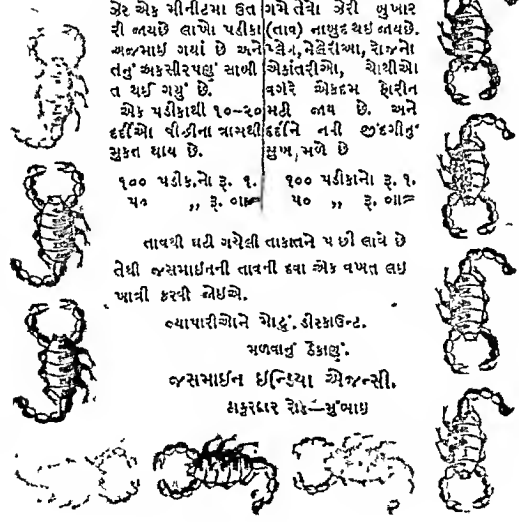 ઝેર એક મીનીટમા ઉત
રી જાયછે લાખો પડીકા
અજમાઈ ગયાં છે અને
તેનું અકસીરપણુ સાબી
ત થઈ ગયું છે.
એક પડીકાથી ૧૦-૨૦
દર્દીઓ વીંછીના ત્રાસથી
મુકત થાય છે.
૧૦૦ પડીકાનો રૂ. ૧.
૫૦ ,, રૂ. ૦ાા
ગમે તેવા ઝેરી બુખાર
(તાવ) નાબુદ થઇ જાયછે.
પ્લેગ, મેલેરીઆ, રોજનો
એકાંતરીઓ, ચોથીઓ
વગરે એકદમ હારીન
મટી જાય છે. અને
દર્દીને નવી જીંદગીનું
સુખ, મળે છે
૧૦૦ પડીકાનો રૂ. ૧.
૫૦ ,, રૂ. ૦ાા
તાવથી ઘટી ગયેલી તાકાતને પછી લાવે છે
તેથી જસમાઈનની તાવની દવા એક વખત લઇ
ખાત્રી કરવી જોઈએ.
વ્યાપારીઓને મોટું ડીસ્કાઉન્ટ.
મળવાનું ઠેકાણું.
જસમાઈન ઇન્ડિયા એજન્સી.
ઠાકુરદ્વાર રોડ—મુંબાઇ